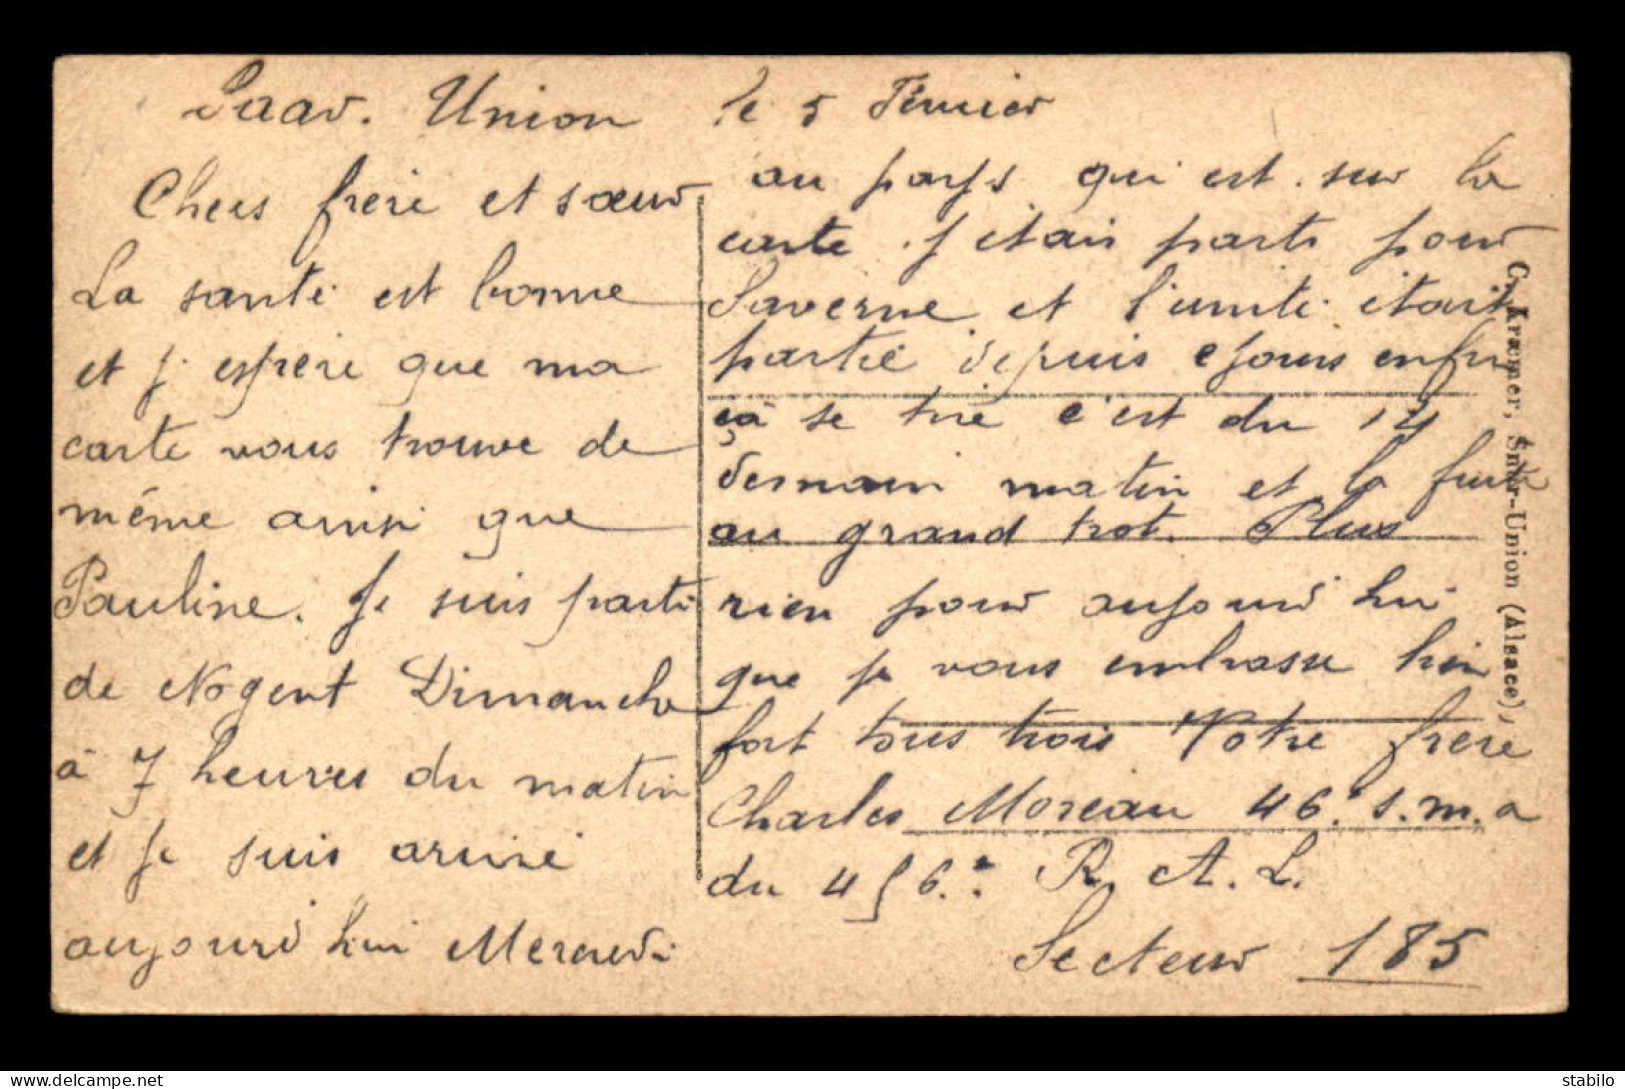 Saar. Union le 5 Février
Chers frère et sœur
La santé est bonne
et j espère que ma
carte vous trouve de
même ainsi que
Pauline. Je suis parti
de Nogent Dimanche
à 7 heures du matin
et je suis arrivé
aujourd hui Mercredi
au pays qui est sur la
carte. j étais parti pour
Saverne et l'unité était
partie depuis 2 jours enfin
çà se tire c'est du 14
demain matin et la fuite
au grand trot. Plus
rien pour aujourd hui
que je vous embrasse bien
fort tous trois Votre frère
Charles Moreau 46e s.m.a
du 456e R. A. L.
Secteur 185
C. Kræmer, Saar-Union (Alsace).
delcampe.net
stabilo